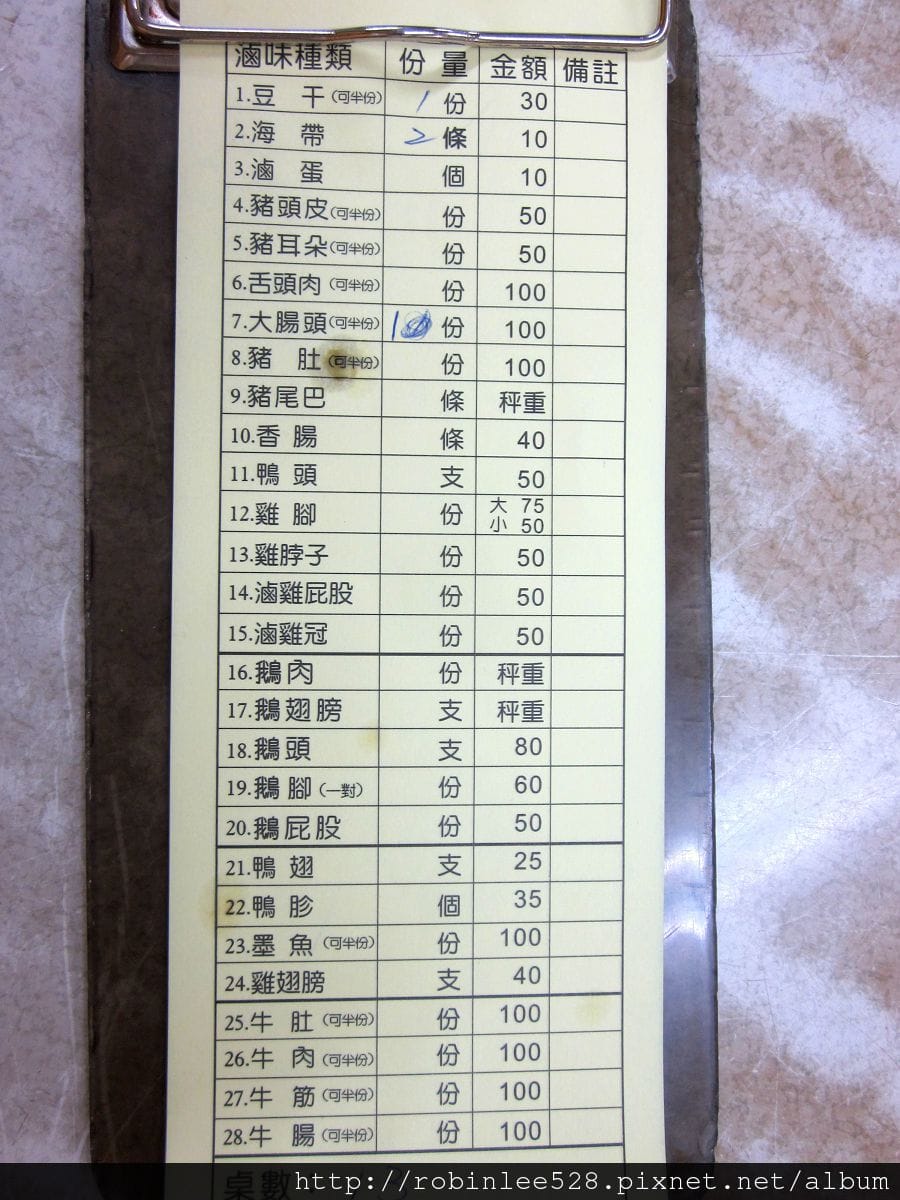 滷味種類 份量 金額 備註
1.豆 干(可半份) 1 份 30
2.海 帶 2 條 10
3.滷 蛋 個 10
4.豬頭皮(可半份) 份 50
5.豬耳朵(可半份) 份 50
6.舌頭肉(可半份) 份 100
7.大腸頭(可半份) 1 份 100
8.豬 肚(可半份) 份 100
9.豬尾巴 條 秤重
10.香 腸 條 40
11.鴨 頭 支 50
12.雞 腳 份 大 75
小 50
13.雞脖子 份 50
14.滷雞屁股 份 50
15.滷雞冠 份 50
16.鵝肉 份 秤重
17.鵝翅膀 支 秤重
18.鵝頭 支 80
19.鵝 腳(一對) 份 60
20.鵝屁股 份 50
21.鴨 翅 支 25
22.鴨 胗 個 35
23.墨 魚(可半份) 份 100
24.雞翅膀 支 40
25.牛 肚(可半份) 份 100
26.牛 肉(可半份) 份 100
27.牛 筋(可半份) 份 100
28.牛 腸(可半份) 份 100
桌數:
http://robinlee528.pixnet.net/album